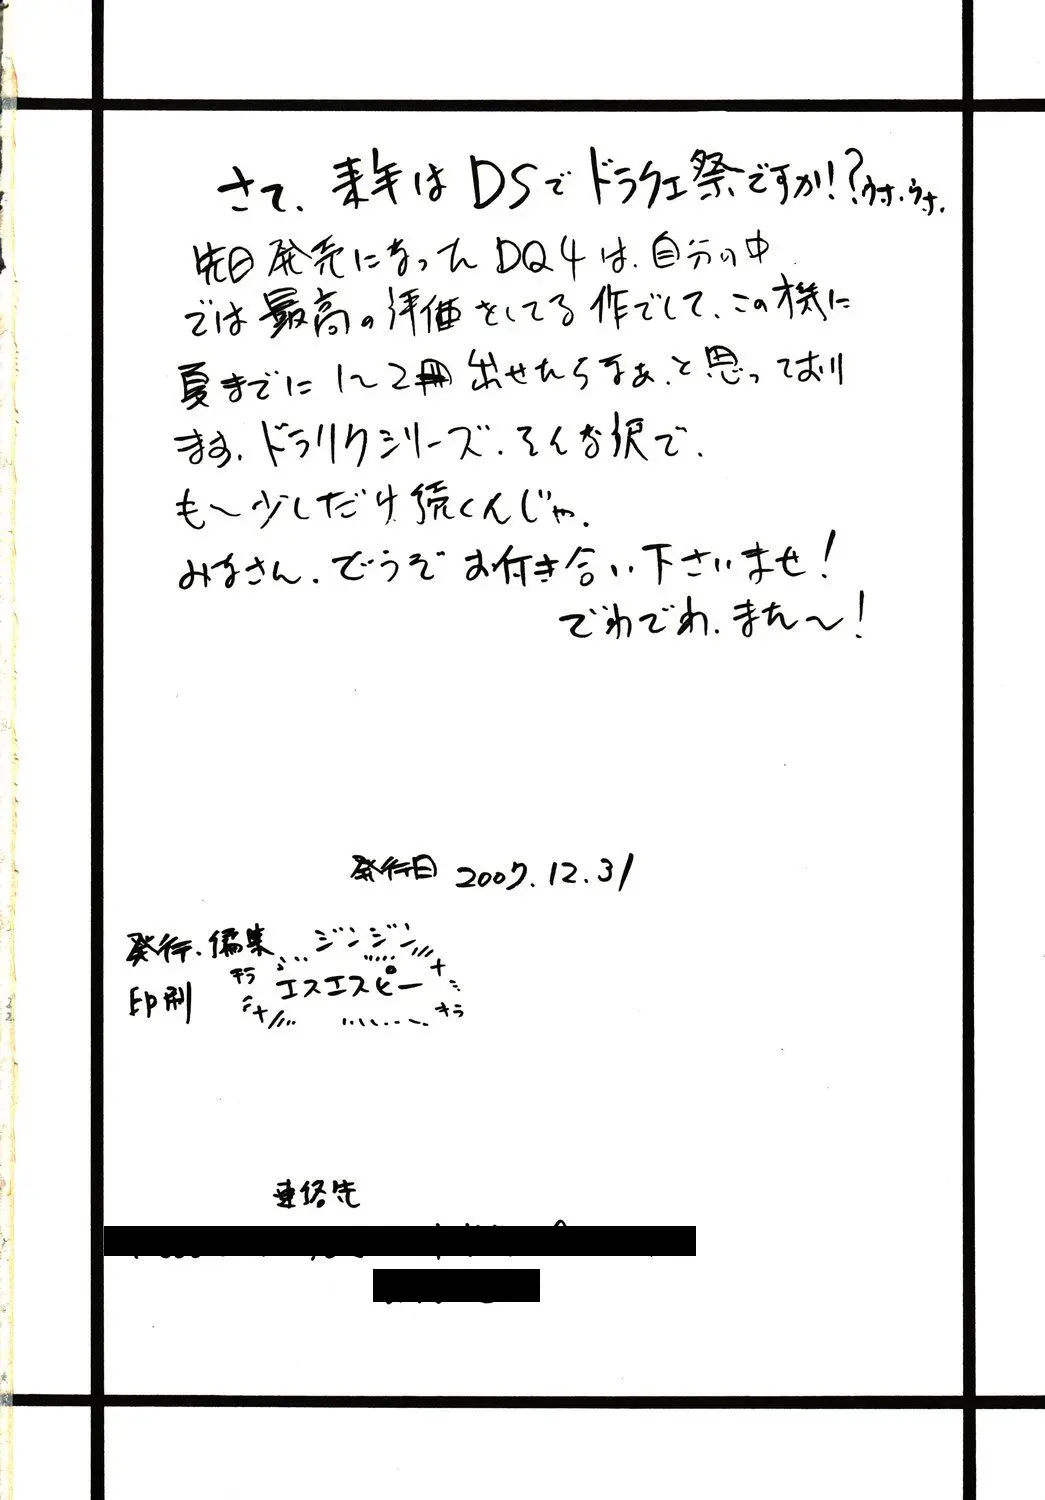 さて、来年はDSでドラクエ祭ですか!?ウサ、ウサ、
先日発売になったDQ4は、自分の中
では最高の評価をしてる作でして、この機に
夏までに1〜2冊出せたらなぁ、と思っており
ます。ドラリクシリーズ、そんな訳で、
も〜少しだけ続くんじゃ。
みなさん、どうぞお付き合い下さいませ!
でわでわ、また〜!
発行日 2007.12.31
発行、編集 ジンジン
キラ
印刷 エスエスピー
キラ
連絡先